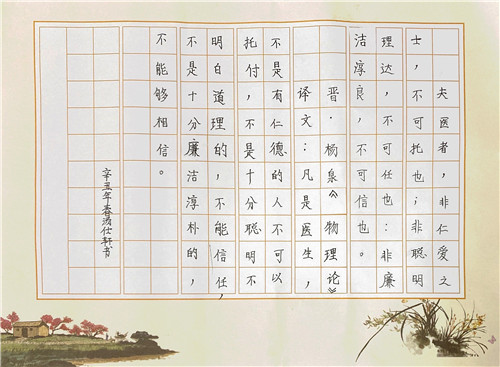 夫医者，非仁爱之
士，不可托也；非聪明
理达，不可任也：非廉
洁淳良，不可信也。
晋·杨泉《物理论》
译文：凡是医生，
不是有仁德的人不可以
托付，不是十分聪明不
明白道理的，不能信任，
不是十分廉洁淳朴的，
不能够相信。
辛丑年春汤仕轩书